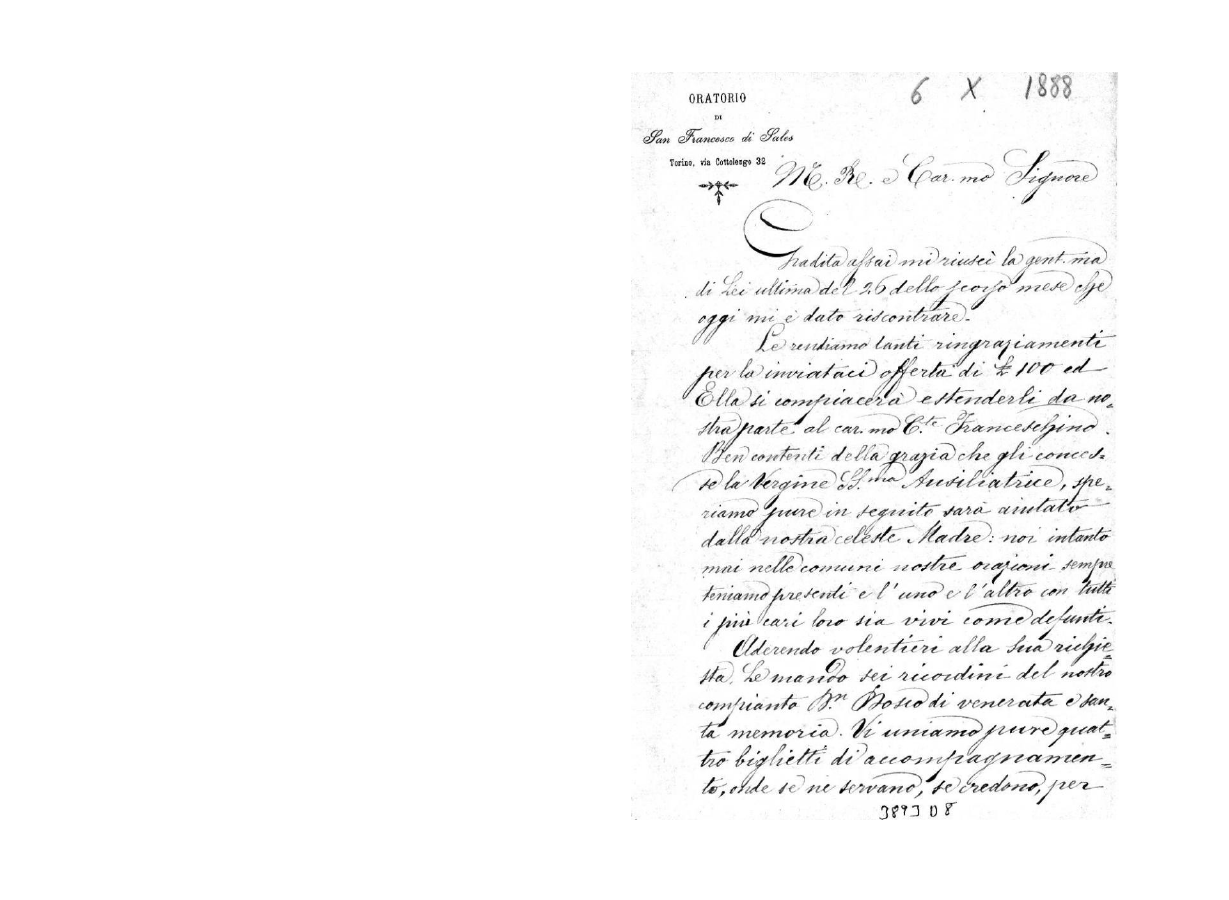 6 X 1888
ORATORIO
DI
San Francesco di Sales
Torino, via Cottolengo 32
M. R. e Car.mo Signore
Gradita assai mi riuscì la gent.ma
di Lei ultima del 26 dello scorso mese che
oggi mi è dato riscontrare.
Le rendiamo tanti ringraziamenti
per la inviataci offerta di £ 100 ed
Ella si compiacerà estenderli da no=
stra parte al car.mo C.te Franceschino.
Ben contenti della grazia che gli conces=
se la Vergine SS.ma Ausiliatrice, spe=
riamo pure in seguito sarà aiutato
dalla nostra celeste Madre: noi intanto
mai nelle comuni nostre orazioni sempre
teniamo presenti e l'uno e l'altro con tutti
i più cari loro sia vivi come defunti.
Aderendo volentieri alla Sua richie=
sta, Le mando sei ricordini del nostro
compianto D.n Bosco di venerata e san=
ta memoria. Vi uniamo pure quat=
tro biglietti di accompagnamen=
to, onde se ne servano, se credono, per
3893 D 8